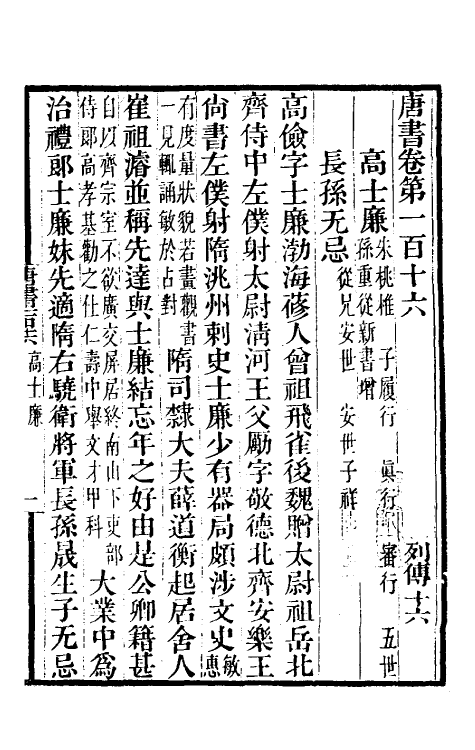 唐書卷第一百十六
列傳十六
高士廉 朱桃椎 子履行 眞行 審行 五世
孫重從新書增
長孫无忌 從兄安世 安世子祥
高儉字士廉渤海蓚人曾祖飛雀後魏贈太尉祖岳北
齊侍中左僕射太尉淸河王父勵字敬德北齊安樂王
尙書左僕射隋洮州刺史士廉少有器局頗涉文史敏惠
有度量狀貌若畫觀書
一見輒誦敏於占對
隋司隸大夫薛道衡起居舍人
崔祖濬並稱先達與士廉結忘年之好由是公卿籍甚
自以齊宗室不欲廣交屏居終南山下吏部
侍郎高孝基勸之仕仁壽中舉文才甲科
大業中爲
治禮郎士廉妹先適隋右驍衛將軍長孫晟生子无忌
高士廉
一